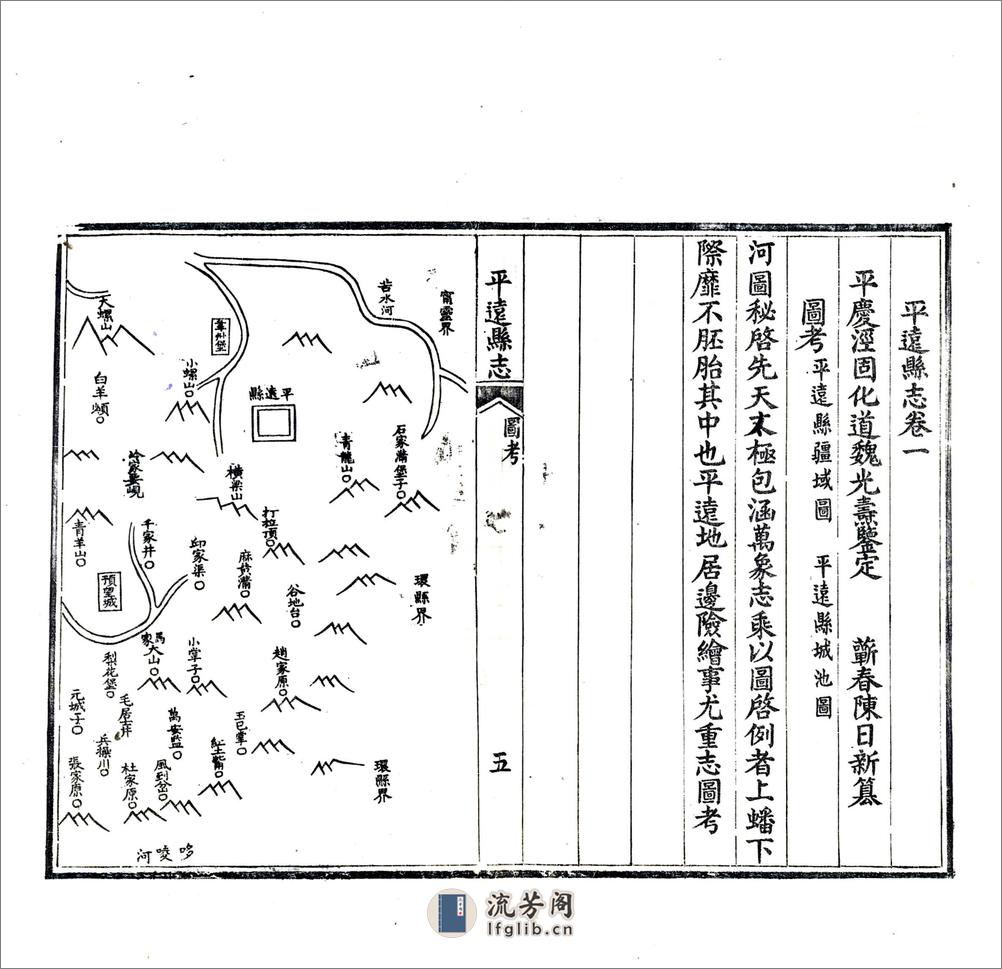 平遠縣志卷一
平慶涇固化道魏光燾鑒定 蘄春陳日新纂
圖考 平遠縣疆域圖 平遠縣城池圖
河圖秘啓先天太極包涵萬象志乘以圖啓例者上蟠下
際靡不胚胎其中也平遠地居邊險繪事尤重志圖考
平遠縣志
圖考
五
甯靈界
苦水河
韋州堡
天螺山
小螺山
白羊㟲
平遠縣
石家溝堡子
青龍山
橫梁山
打拉頂
青羊山
千家井
預望城
邱家渠
谷地台
環縣界
馬家大山
小掌子
趙家原
梨花堡
毛居井
元城子
萬安監
紅土嘴
兵操川
杜家原
風到岔
張家原
環縣界
哆唛河
流芳阁
lfglib.cn